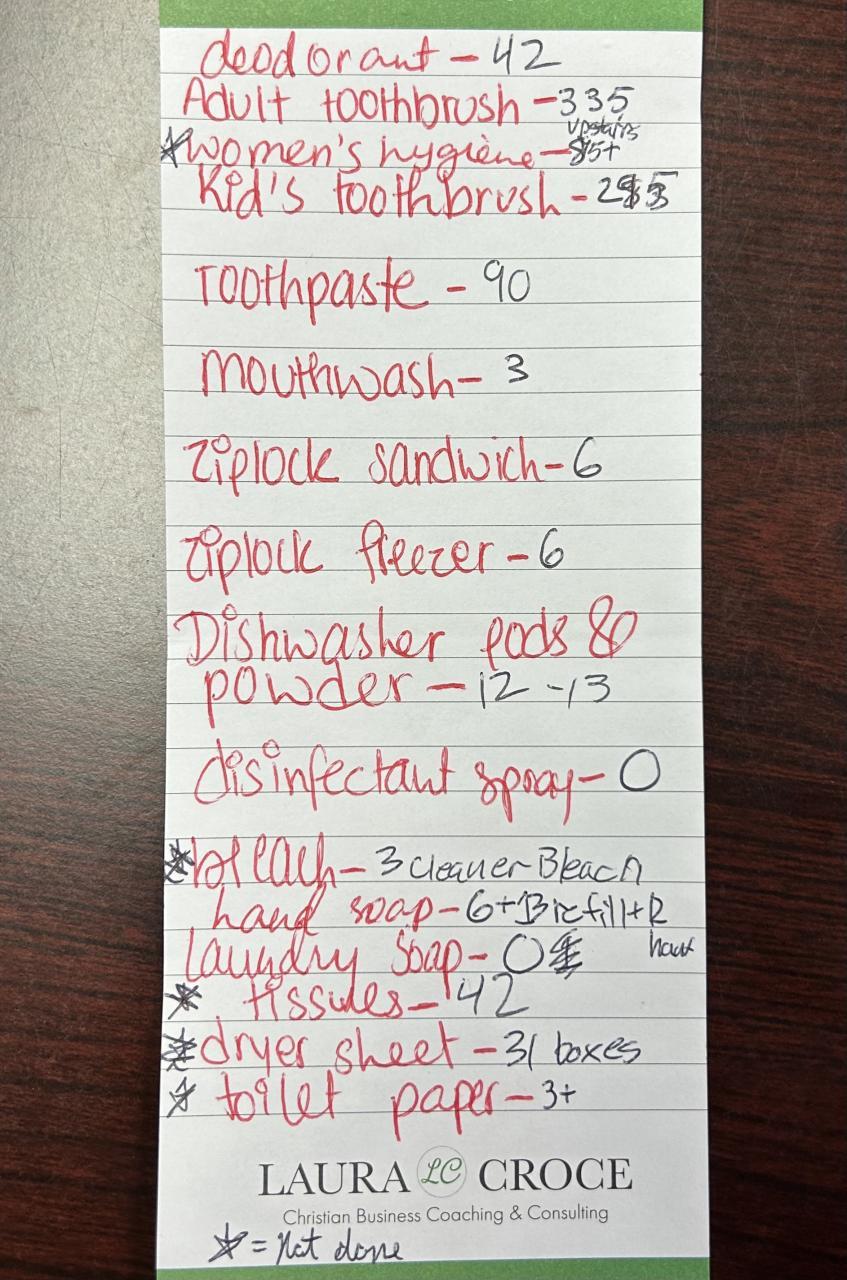 deodorant - 42
Adult toothbrush - 335
upstairs
*women's hygiene - 5+
Kid's toothbrush - 2
Toothpaste - 90
mouthwash - 3
Ziplock sandwich - 6
Ziplock freezer - 6
Dishwasher pods &
powder - 12 - 13
disinfectant spray - 0
*bleach - 3 cleaner Bleach
hand soap - 6+13 refill+
laundry soap - 0
* tissues - 42
*dryer sheet - 31 boxes
* toilet paper - 3+
LAURA LC CROCE
Christian Business Coaching & Consulting
* = not done